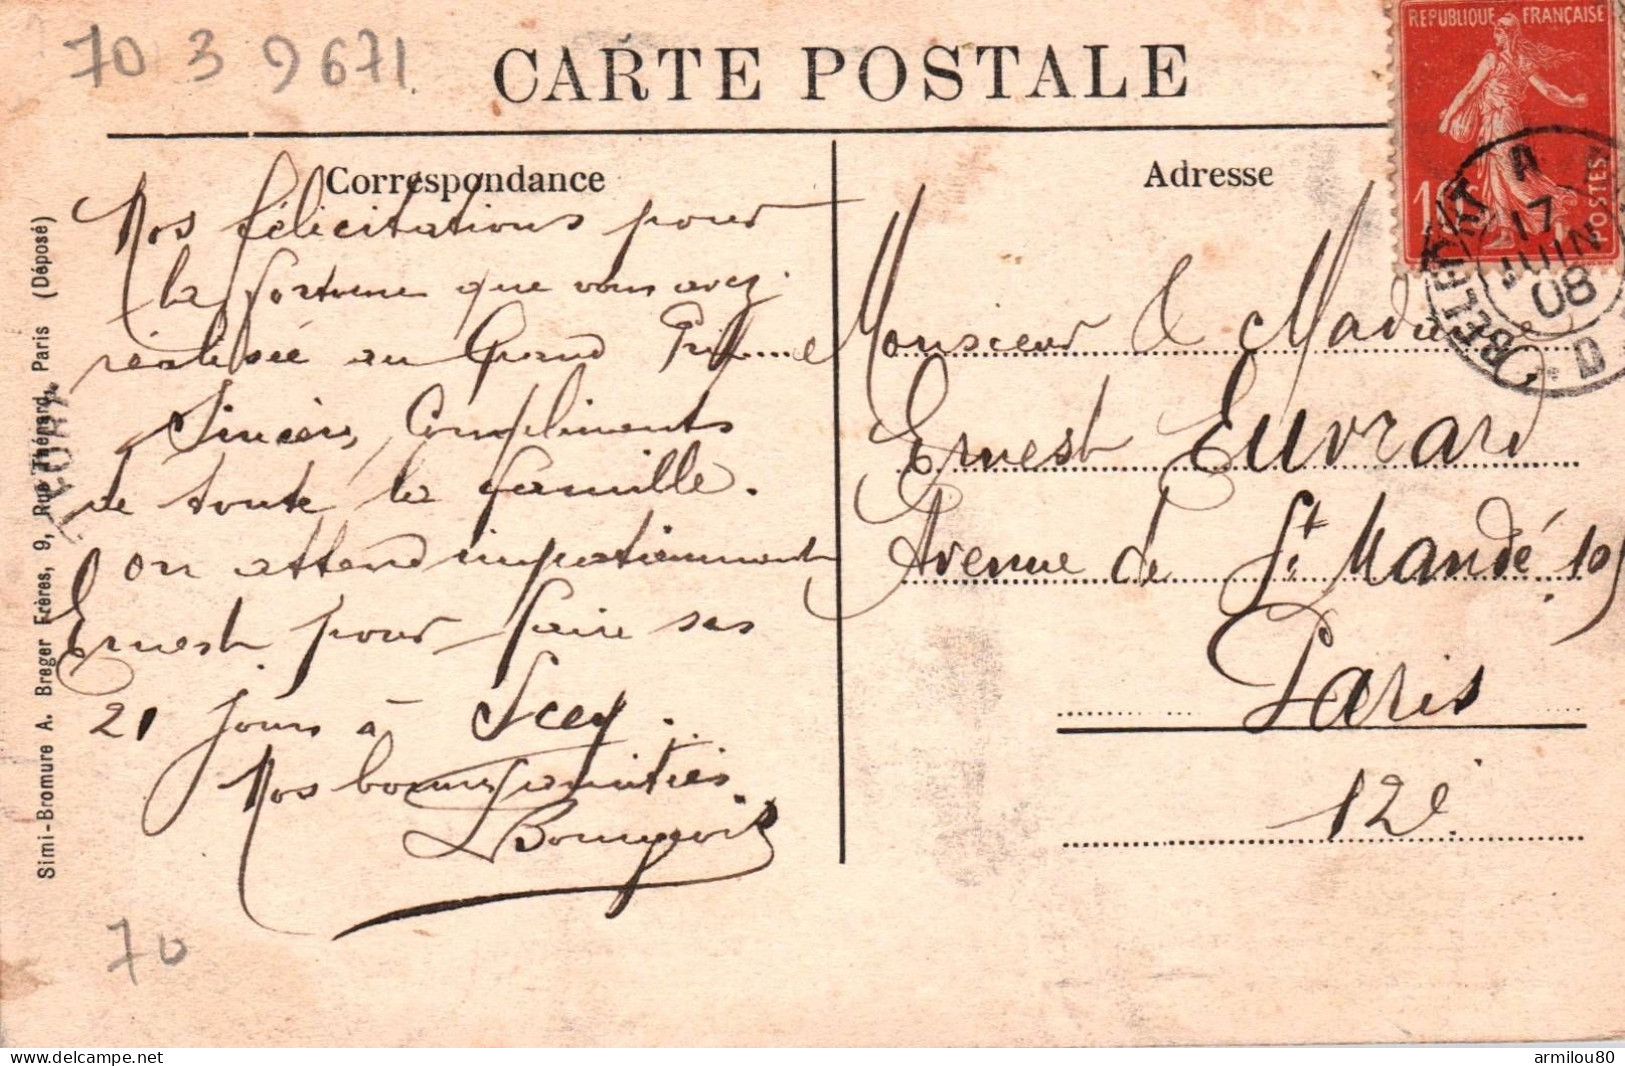 70 3 9671
CARTE POSTALE
REPUBLIQUE FRANÇAISE
10c
POSTES
17
JUIN
08
BELFORT
Correspondance
Nos félicitations pour
la fortune que vous avez
réalisée au Grand Prix
Sincères Compliments
de toute la famille.
On attend impatiemment
Ernest pour faire ses
21 jours à Scey.
Nos bonnes amitiés
Bourgeois
Adresse
Monsieur & Madame
Ernest Euvrard
Avenue de St Mandé 105
Paris
12e
Simi-Bromure A. Breger Frères, 9, Rue Thénard, Paris (Déposé)
70
armilou80